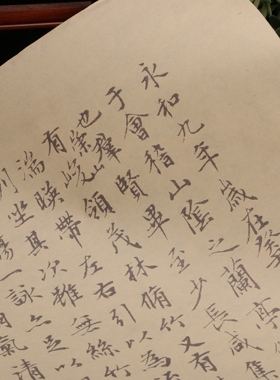 永和九年歲在癸
于會稽山陰之蘭亭
也羣賢畢至少長咸集
有崇山峻領茂林脩竹又有
湍暎帶左右引以為
列坐其次雖無絲竹
觴一詠亦足以
氣清